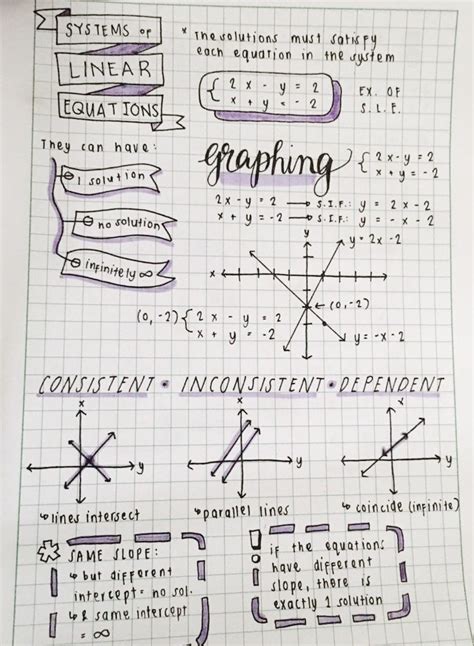 SYSTEMS OF
LINEAR
EQUATIONS
* The solutions must satisfy
each equation in the system
{ 2x - y = 2
x + y = -2
EX. OF
S.L.E.
They can have:
⊖ 1 solution
⊖ no solution
⊖ infinitely ∞
graphing
{ 2x - y = 2
x + y = -2
2x - y = 2 → S.I.F.: y = 2x - 2
x + y = -2 → S.I.F.: y = -x - 2
y
y = 2x - 2
x
← (0, -2)
(0, -2) { 2x - y = 2
x + y = -2
y = -x - 2
CONSISTENT • INCONSISTENT • DEPENDENT
x
y
x
y
x
y
↳ lines intersect
↳ parallel lines
↳ coincide (infinite)
SAME SLOPE:
↳ but different
intercept = no sol.
↳ & same intercept
= ∞
if the equations
have different
slope, there is
exactly 1 solution